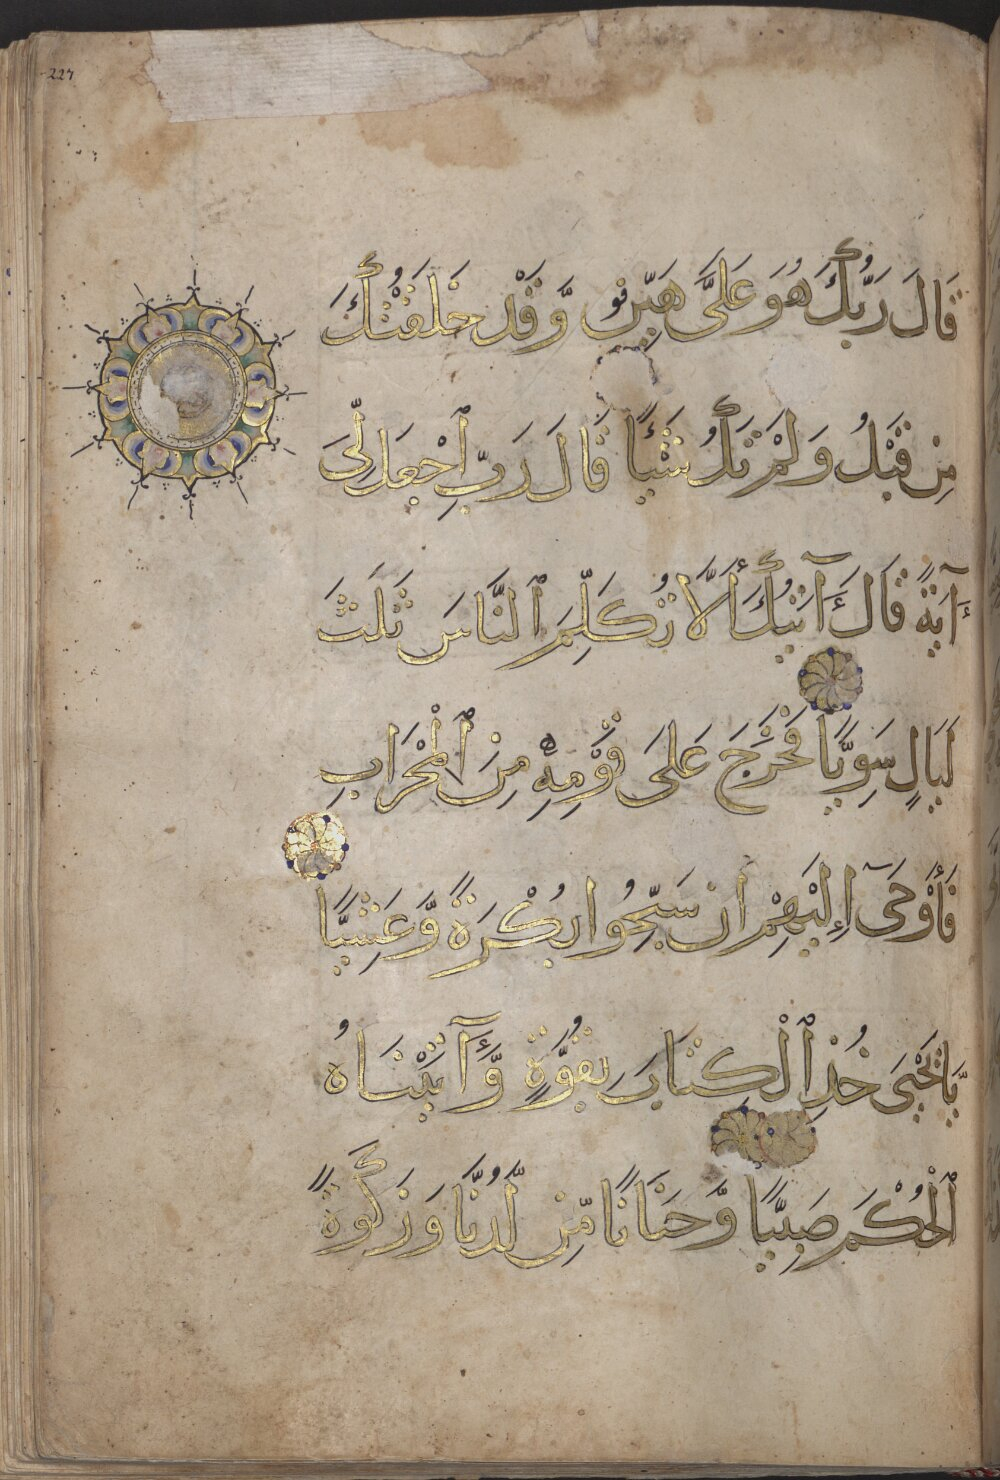 227
قَالَ رَبُّكَ هُوَ عَلَىَّ هَيِّنٌ وَّقَدْ خَلَقْتُكَ
مِن قَبْلُ وَلَمْ تَكُ شَيْـًٔا قَالَ رَبِّ ٱجْعَل لِّىٓ
ءَايَةً قَالَ ءَايَتُكَ أَلَّا تُكَلِّمَ ٱلنَّاسَ ثَلَٰثَ
لَيَالٍ سَوِيًّا فَخَرَجَ عَلَىٰ قَوْمِهِۦ مِنَ ٱلْمِحْرَابِ
فَأَوْحَىٰٓ إِلَيْهِمْ أَن سَبِّحُوا بُكْرَةً وَّعَشِيًّا
يَّايَحْيَىٰ خُذِ ٱلْكِتَابَ بِقُوَّةٍ وَّءَاتَيْنَاهُ
ٱلْحُكْمَ صَبِيًّا وَّحَنَانًا مِّن لَّدُنَّا وَزَكَوٰةً